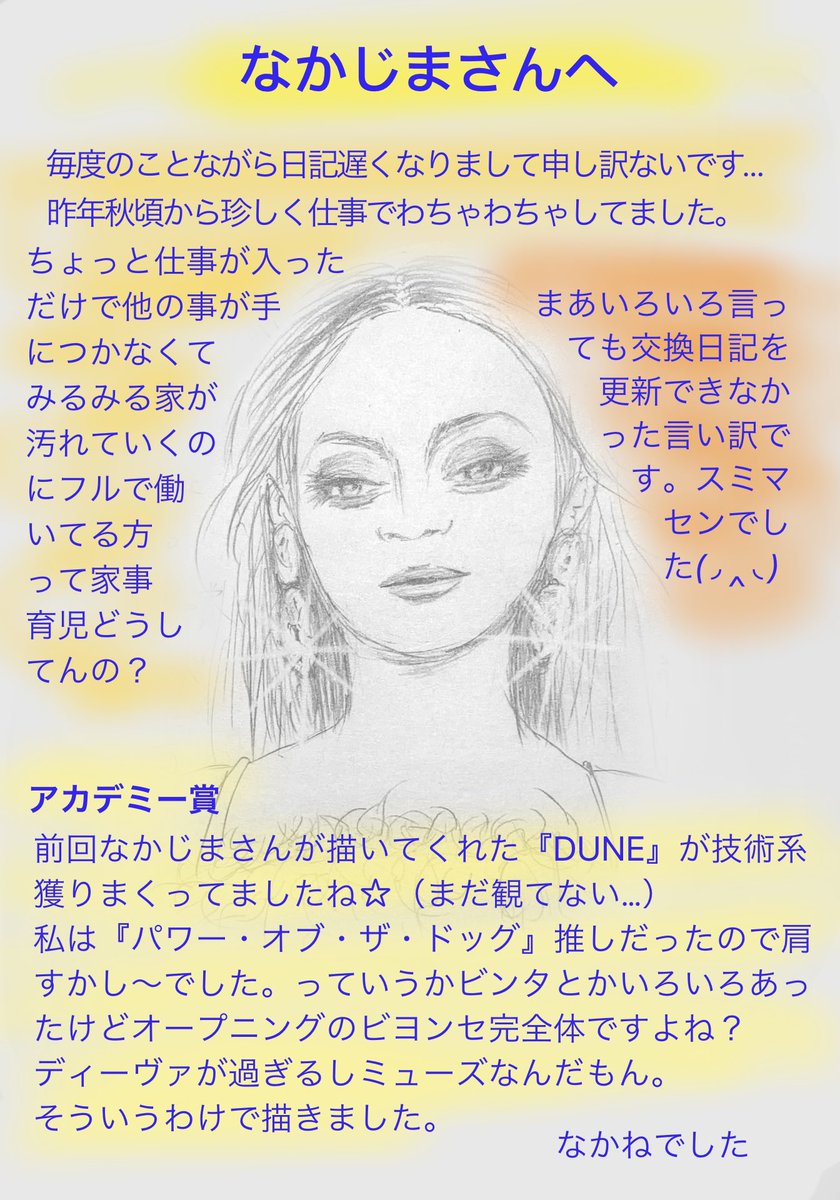 なかじまさんへ
毎度のことながら日記遅くなりまして申し訳ないです...
昨年秋頃から珍しく仕事でわちゃわちゃしてました。
ちょっと仕事が入った
だけで他の事が手
につかなくて
みるみる家が
汚れていくの
にフルで働
いてる方
って家事
育児どうし
てんの？
まあいろいろ言っ
ても交換日記を
更新できなか
った言い訳で
す。スミマ
センでし
た(◞‸◟)
アカデミー賞
前回なかじまさんが描いてくれた『DUNE』が技術系
獲りまくってましたね☆（まだ観てない...）
私は『パワー・オブ・ザ・ドッグ』推しだったので肩
すかし〜でした。っていうかビンタとかいろいろあっ
たけどオープニングのビヨンセ完全体ですよね？
ディーヴァが過ぎるしミューズなんだもん。
そういうわけで描きました。
なかねでした